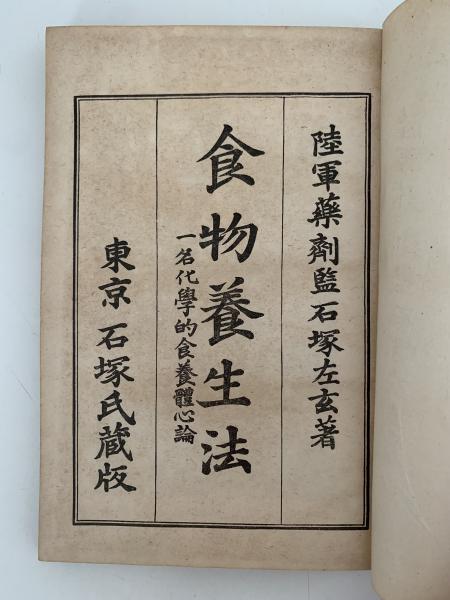 陸軍藥劑監石塚左玄著
食物養生法
一名化學的食養體心論
東京石塚氏蔵版